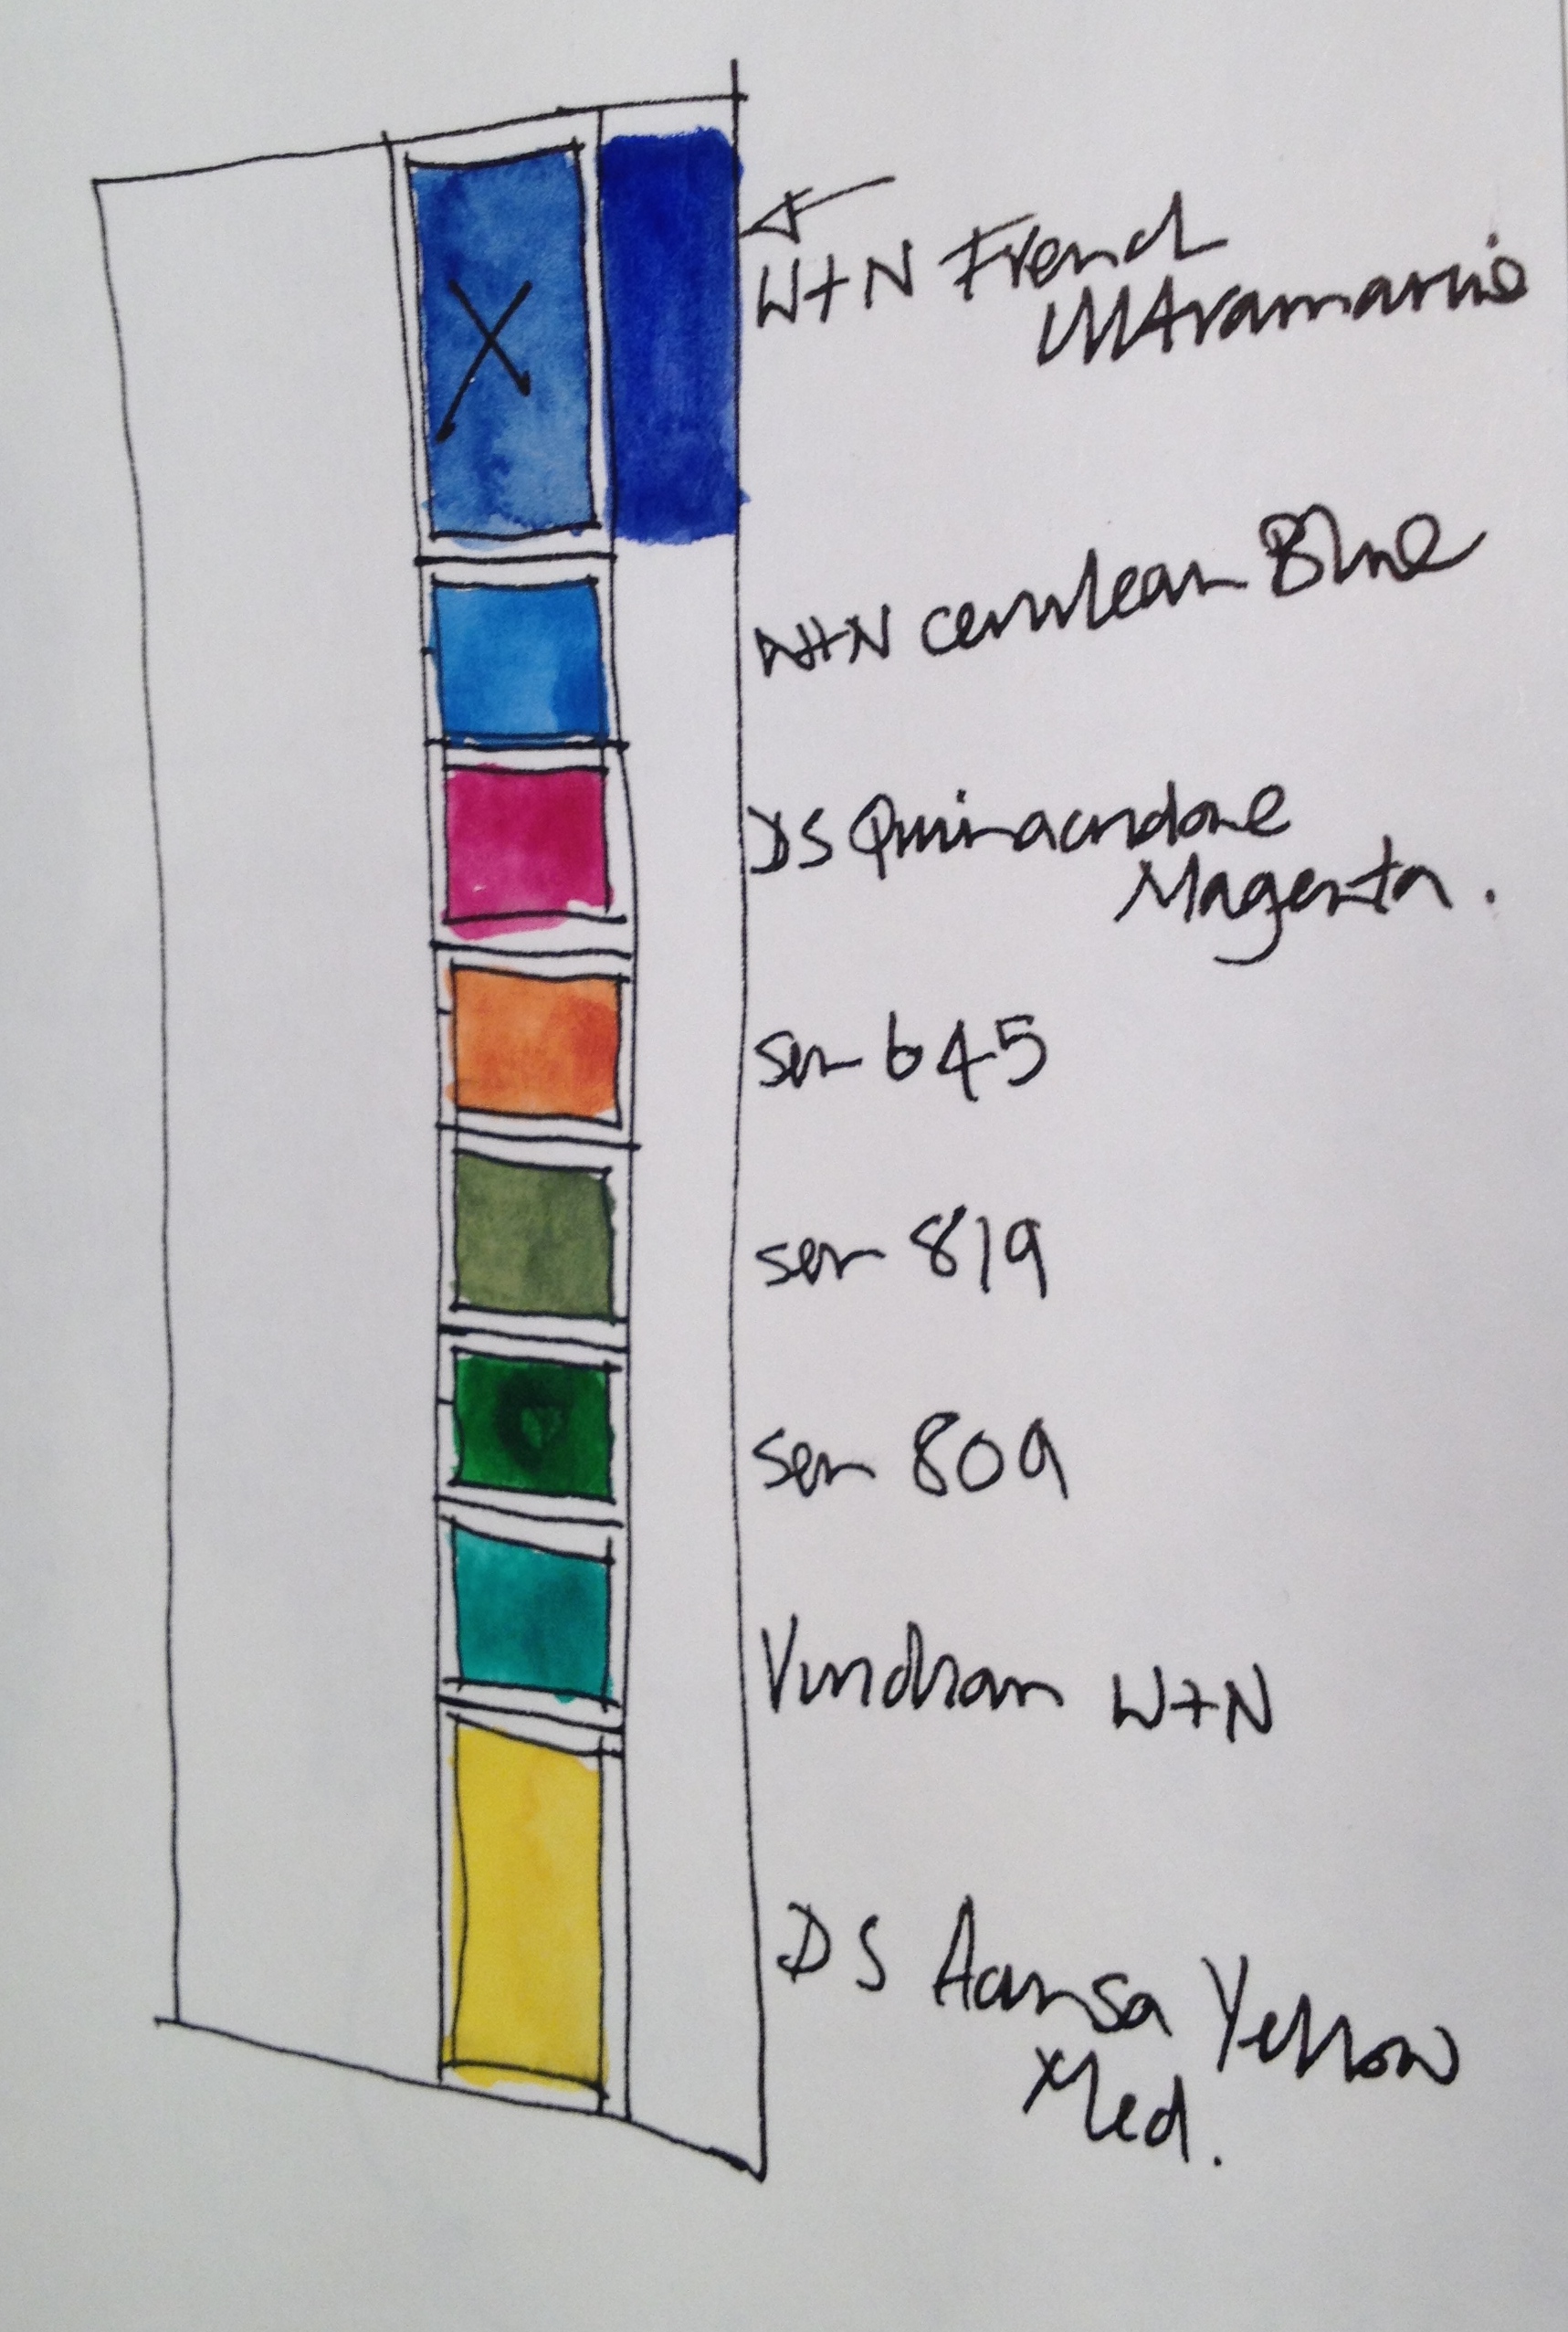 W+N French
Ultramarine
W+N Cerulean Blue
DS Quinacridone
Magenta.
Sen 645
Sen 819
Sen 809
Viridian W+N
DS Hansa Yellow
Med.